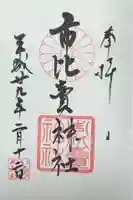 奉拝
市比賣神社
平成廿九年二月十二日